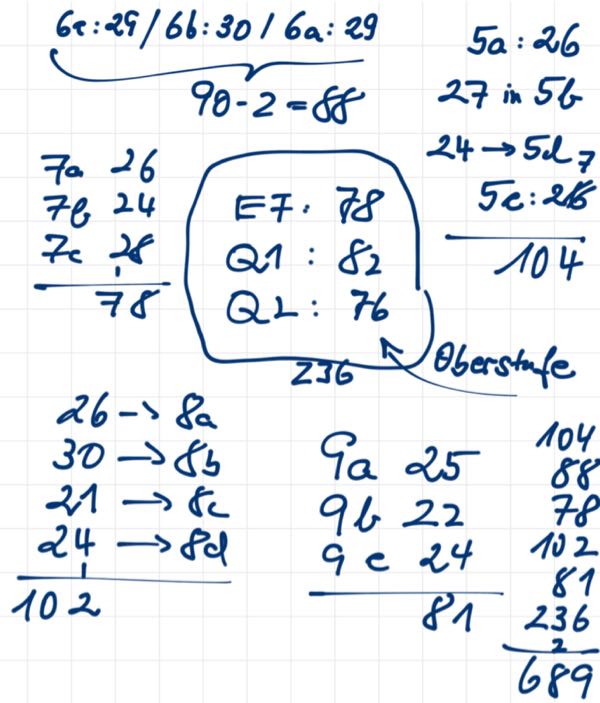 6c:29 / 6b:30 / 6a:29
90-2=88
5a:26
27 in 5b
24→5d
7
5c:26
104
7a 26
7b 24
7c 28
1
78
EF: 78
Q1: 82
Q2: 76
236
Oberstufe
26→8a
30→8b
21→8c
24→8d
1
102
9a 25
9b 22
9c 24
81
104
88
78
102
81
236
2
689